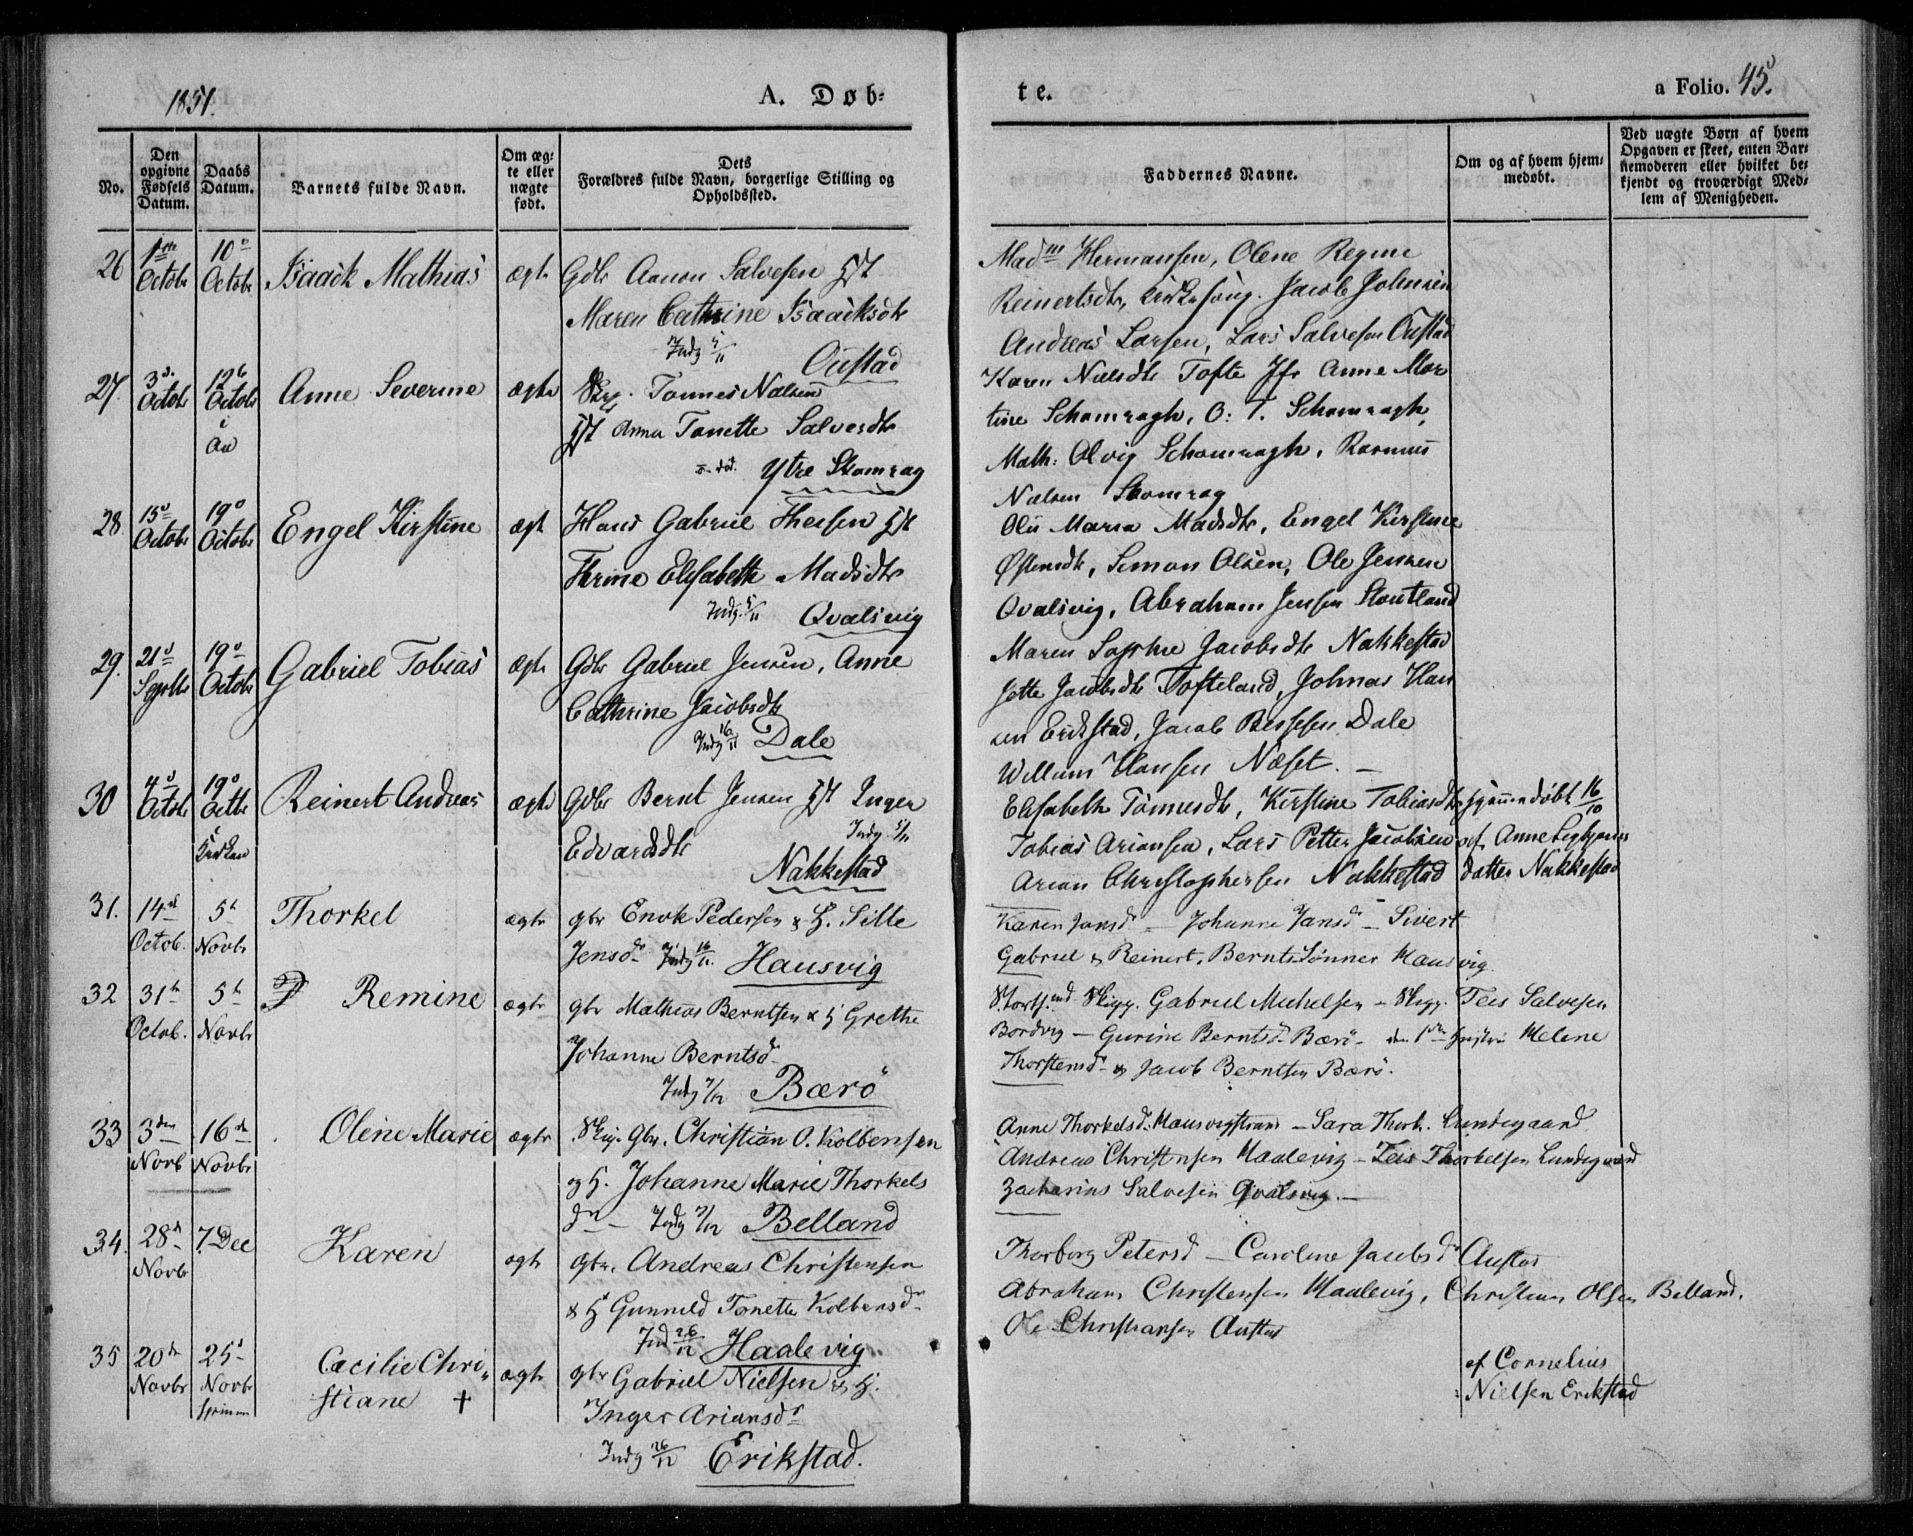 1851.
A. Døb-
te.
a Folio. 45.
No.
Den opgivne Fødsels Datum.
Daabs Datum.
Barnets fulde Navn.
Om ægte eller nægte født.
Dets
Forældres fulde Navn, borgerlige Stilling og Opholdssted.
Faddernes Navne.
Om og af hvem hjemmedøbt.
Ved uægte Børn af hvem Opgaven er skeet, enten Barnemoderen eller hvilket bekjendt og troværdigt Medlem af Menigheden.
26 1ste Octobr 10d Octobr Isaack Mathias ægte Gdbr Aanon Salvesen
Maren Cathrine Isaacksdtr
Indg 5/11 Oustad
Madm Hermansen, Olene Regine
Reinertsdtr, Jacob Johnsen
Andreas Larsen, Lars Salvesen Oustad
27. 3d Octobr 12te Octobr i Aa Anne Severine ægte Tønnes Nielsen
Anna Tonette Salvesdtr
Ytre Skomrag
Karen Nielsdtr Tofte Jfr Anne Mar
tine Schomragh, O. T. Schomragh,
Math: Olvig Schomragh, Rasmus
Nielsen Skomrag
28 15d Octobr 19d Octobr Engel Kirstine ægte Hans Gabriel Theisen
Thrine Elisabeth Madsdtr
Indg. 5/11 Qvalsvig
Maria Madsdtr, Engel Kirstine
Østensdtr, Simon Olsen, Ole Jensen
Qvalsvig, Abraham Jensen Stoutland
29. 21d Septbr 19d Octobr Gabriel Tobias ægte Gdbr Gabriel Jensen, Anne
Cathrine Jacobsdtr
Indg 16/11 Dale
Maren Sophie Jacobsdtr Nakkestad
Jette Jacobsdtr Tofteland, Johnas Han
sen Erikstad, Jacob Berssesen Dale
Willum Hansen Næset.
30 4d Octobr 19d Octbr i Kirken Reinert Andreas ægte Gdbr Bernt Jensen Inger
Edvardsdtr Indg. 5/11
Nakkestad
Elisabeth Tønnesdtr, Kirstine Tobiasdtr hjemmedøbt 16/10
Tobias Ariansen, Lars Petter Jacobsen af Anne
Arian Christophersen Nakkestad datter Nakkestad
31. 14d Octob. 5t Novbr Thorkel ægte gbr Enok Pedersen & H. Sille
Jensdr Indg 16/11. Hausvig
Karen Jansd – Johanne Jansdr – Sivert
Gabriel & Reinert, Bernts Sønner Hausvig
32 31t Octob. 5t Novbr Remine ægte gbr Mathias Berntsen & H Grethe
Johanne Berntsd
Indg 7/12 Bærø
Skipp. Gabriel Michelsen – Skipp. Teis Salvesen
Bordvig – Gurine Berntsd Bærø – Helene
Thorstensd & Jacob Berntsen Bærø.
33 3den Novb 16de Novbr Olene Marie ægte Skip. Gbr. Christian O. Kolbensen
og H. Johanne Marie Thorkels
dr – Indg 7/12 Belland
Anne Thorkelsd. Hausvigstrand – Sara Thork. Lundegaard
Andreas Christensen Haalevig – Teis Thorkelsen Lundegaard
Zacharias Salvesen Qvalsvig. –
34. 28d Novb 7. Dec Karen ægte gbr. Andreas Christensen
& H Gunnild Tonette Kolbensdr
Ind 26/12 Haalevig.
Thorborg Petersd – Caroline Jacobsdr Austad
Abraham Christensen Haalevig, Christian Olsen Belland.
Ole Christiansen Austad
35 20de Novbr 25d Novbr hjemme Cæcilie Chri-
stiane + ægte gbr Gabriel Nielsen & H.
Inger Ariansdr
Indg 26/12 Erikstad.
af Cornelius
Nielsen Erikstad